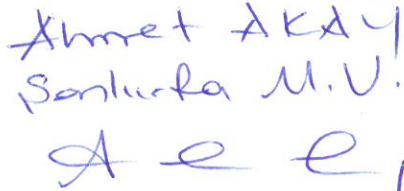 Ahmet AKAY
Şanlıurfa M.V.